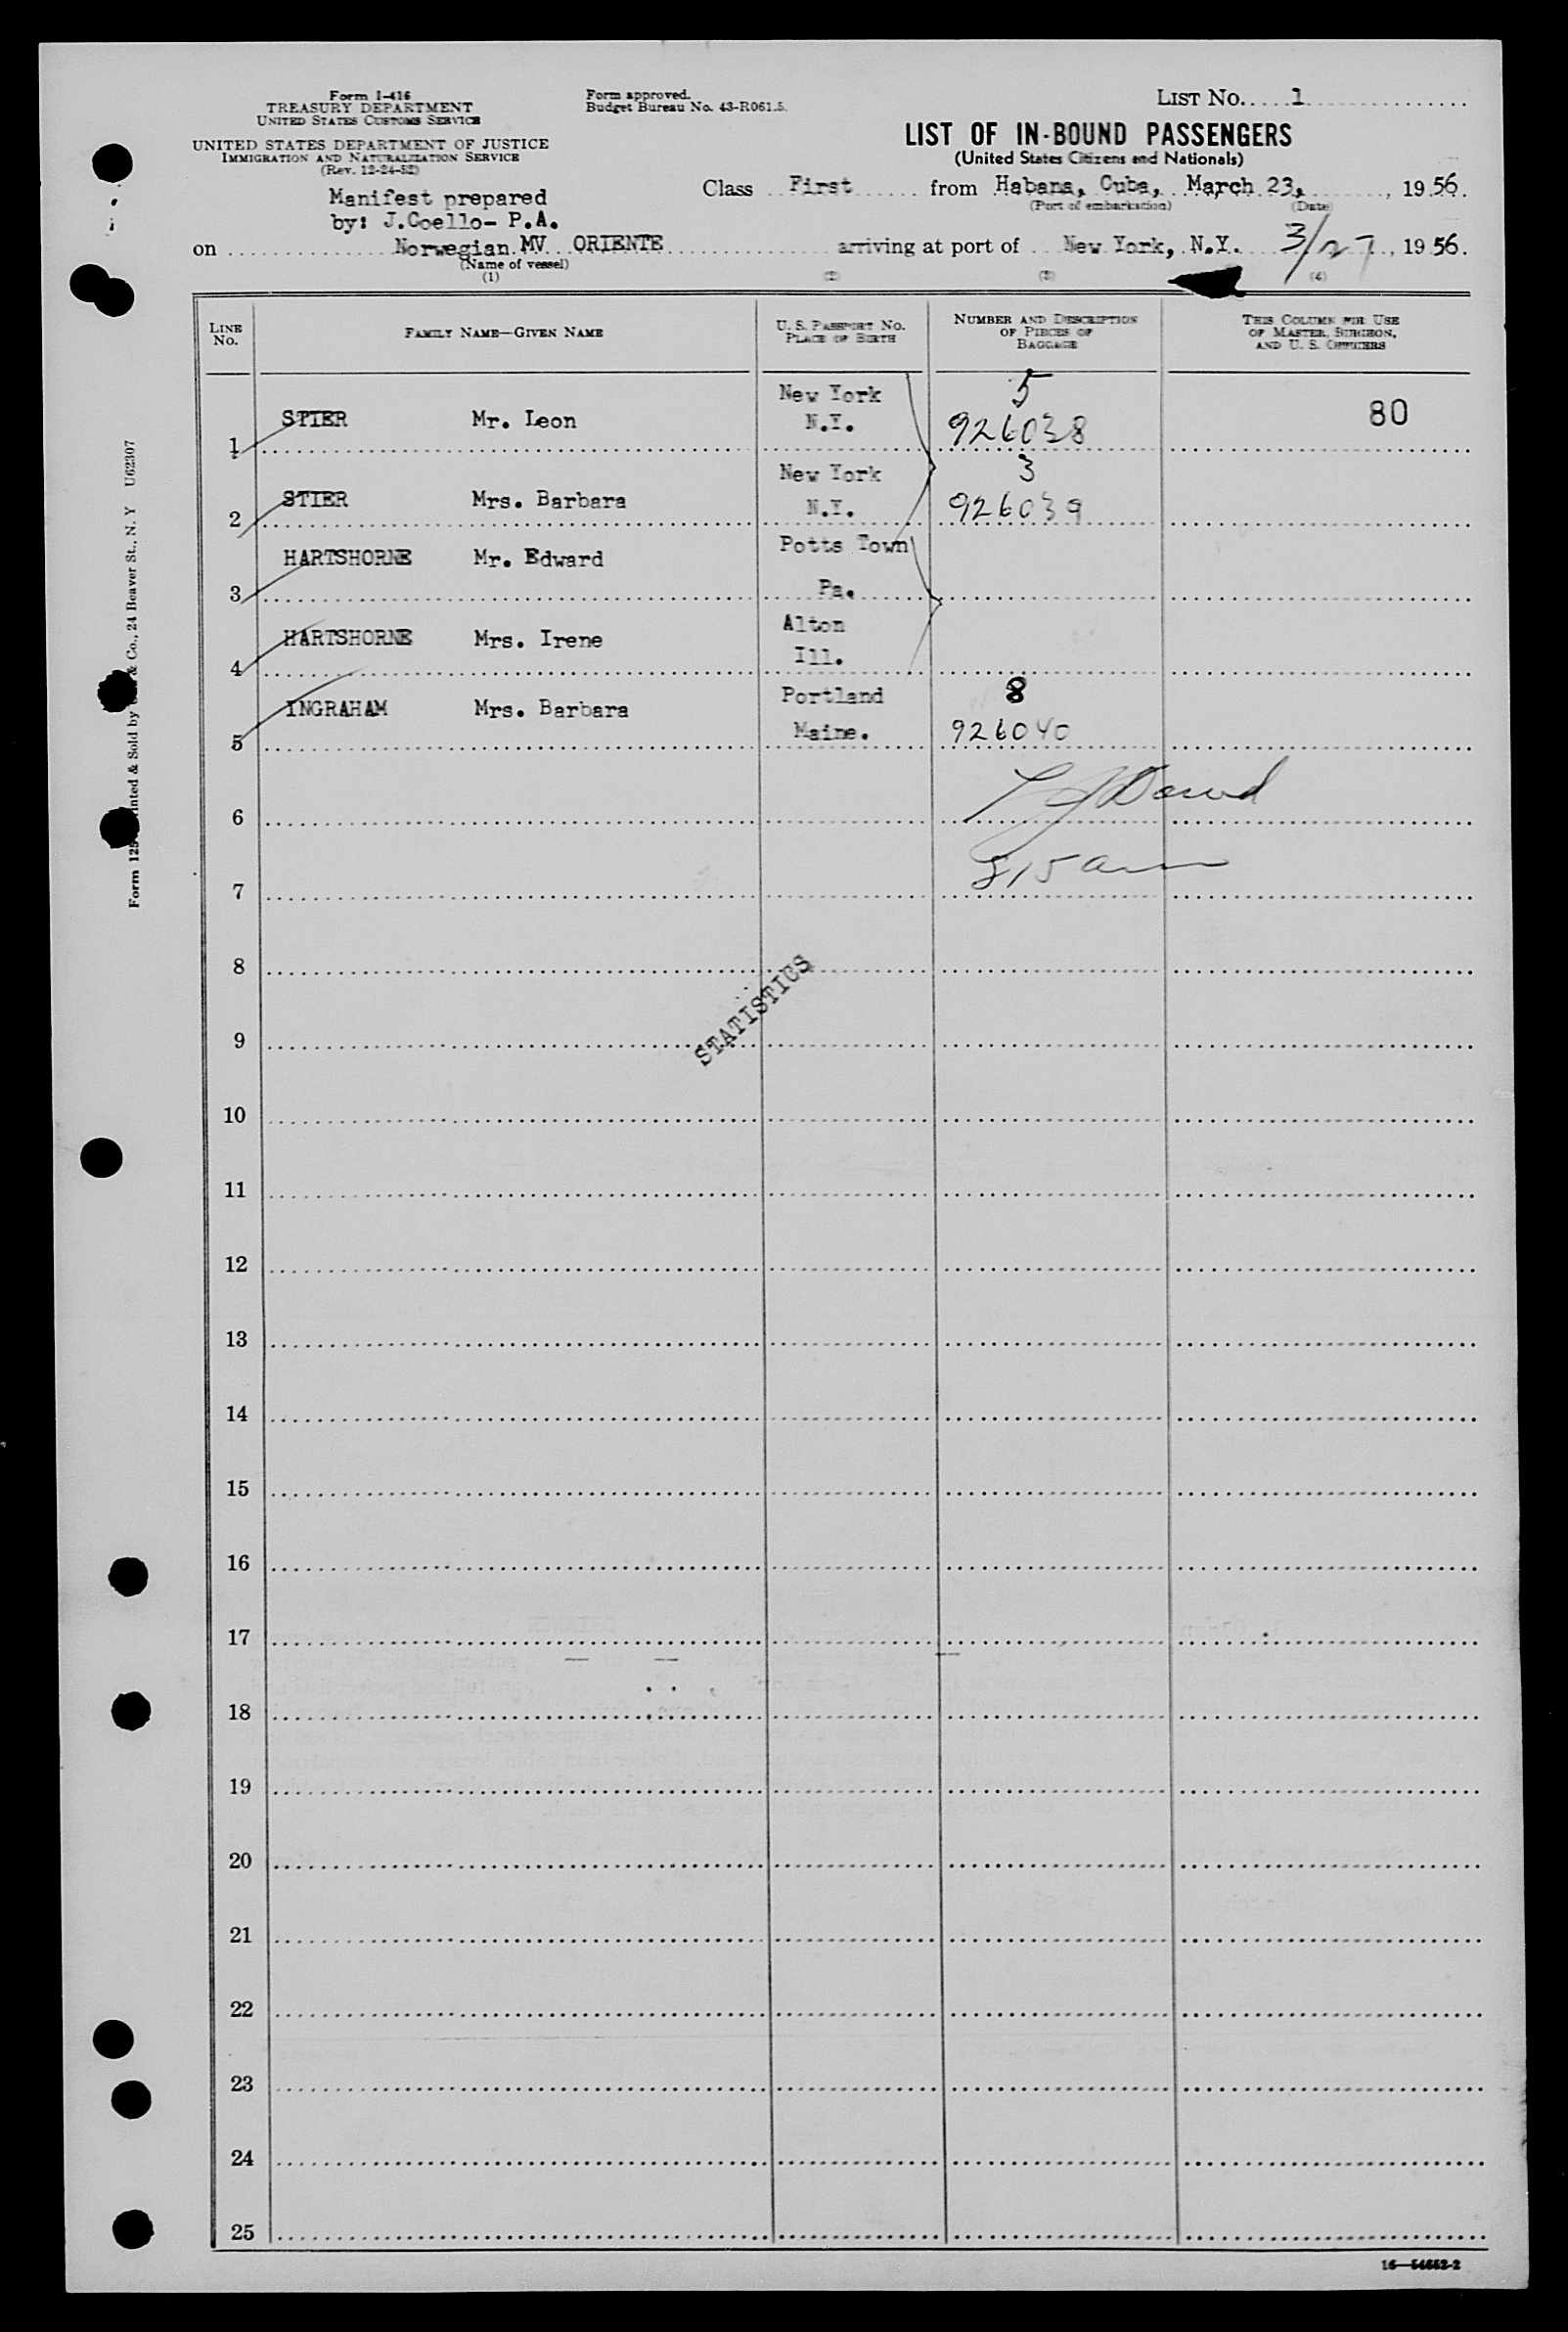 Form I-416
TREASURY DEPARTMENT
UNITED STATES CUSTOMS SERVICE
UNITED STATES DEPARTMENT OF JUSTICE
IMMIGRATION AND NATURALIZATION SERVICE
(Rev. 12-24-52)
Form approved.
Budget Bureau No. 43-R061.5.
LIST No. 1
LIST OF IN-BOUND PASSENGERS
(United States Citizens and Nationals)
Manifest prepared
by: J.Coello- P.A.
Class First from Habana, Cuba, March 23, , 1956.
(Port of embarkation) (Date)
on Norwegian MV ORIENTE arriving at port of New York, N.Y. 3/27, 1956.
(Name of vessel)
(1) (2) (3) (4)
LINE No. FAMILY NAME—GIVEN NAME U. S. PASSPORT No. PLACE OF BIRTH NUMBER AND DESCRIPTION OF PIECES OF BAGGAGE THIS COLUMN FOR USE OF MASTER, SURGEON, AND U. S. OFFICERS
New York 5
STIER Mr. Leon N.Y. 926038 80
1
New York 3
STIER Mrs. Barbara N.Y. 926039
2
Potts Town
HARTSHORNE Mr. Edward
3 Pa.
Alton
HARTSHORNE Mrs. Irene
4 Ill.
Portland 8
INGRAHAM Mrs. Barbara
5 Maine. 926040
6
815 am
7
8
STATISTICS
9
10
11
12
13
14
15
16
17
18
19
20
21
22
23
24
25
16—54662-2
Form 125 Printed & Sold by & Co., 24 Beaver St., N. Y U62307